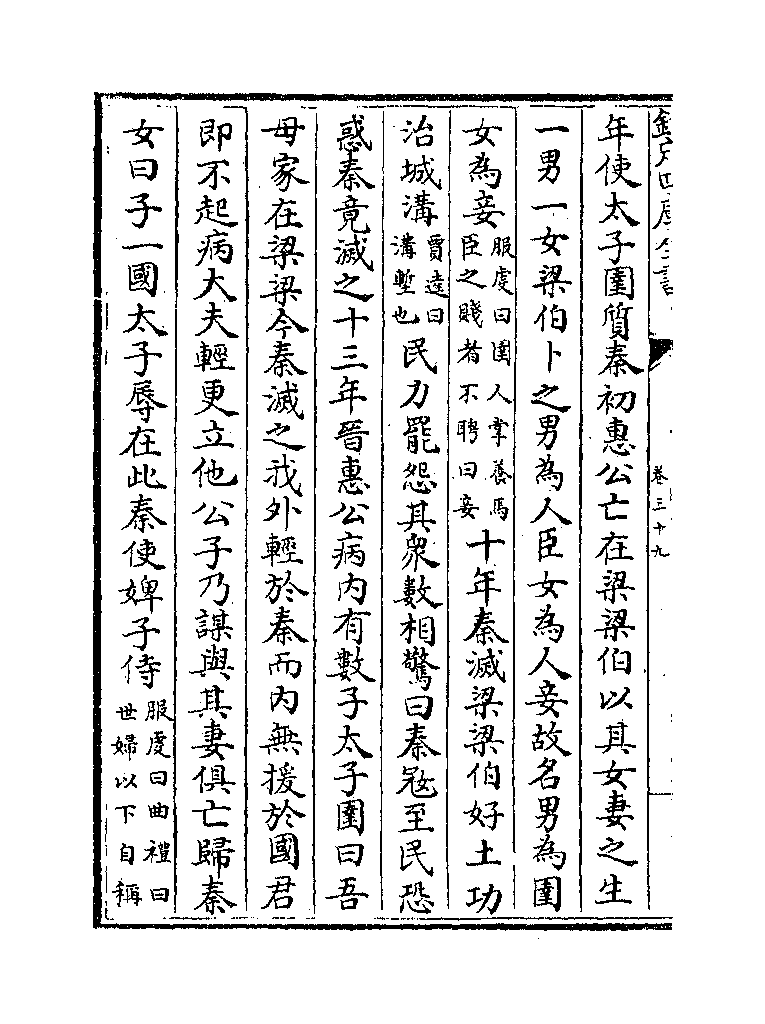 欽定四庫全書
卷三十九
年使太子圉質秦初惠公亡在梁梁伯以其女妻之生
一男一女梁伯卜之男為人臣女為人妾故名男為圉
女為妾服虔曰圉人掌養馬臣之賤者不聘曰妾十年秦滅梁梁伯好土功
治城溝賈逵曰溝塹也民力罷怨其衆數相驚曰秦宼至民恐
惑秦竟滅之十三年晉惠公病内有數子太子圉曰吾
母家在梁梁今秦滅之我外輕於秦而内無援於國君
即不起病大夫輕更立他公子乃謀與其妻俱亡歸秦
女曰子一國太子辱在此秦使婢子侍服虔曰曲禮曰世婦以下自稱